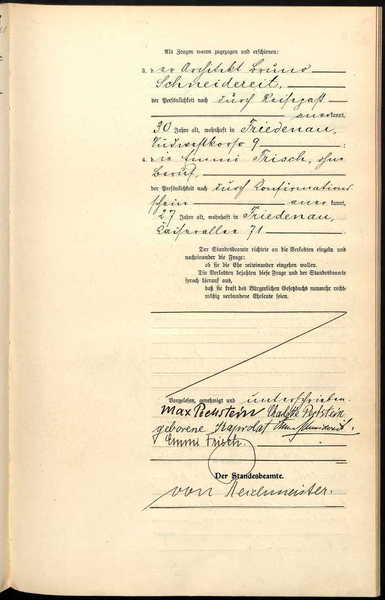 Als Zeugen waren zugezogen und erschienen:
3. der Architekt Bruno
Schneidereit,
der Persönlichkeit nach durch Reisepaß
anerkannt,
30 Jahre alt, wohnhaft in Friedenau,
Südwestkorso 9 ;
4. die Emmi Frisch, ohne
Beruf,
der Persönlichkeit nach durch Confirmations
schein anerkannt,
27 Jahre alt, wohnhaft in Friedenau,
Kaiserallee 71
Der Standesbeamte richtete an die Verlobten einzeln und
nacheinander die Frage:
ob sie die Ehe miteinander eingehen wollen.
Die Verlobten bejahten diese Frage und der Standesbeamte
sprach hierauf aus,
daß sie kraft des Bürgerlichen Gesetzbuchs nunmehr recht-
mäßig verbundene Eheleute seien.
Vorgelesen, genehmigt und unterschrieben.
Max Pechstein Charlotte Pechstein
geborene Kaprolat
Emmi Frisch.
Der Standesbeamte.
von